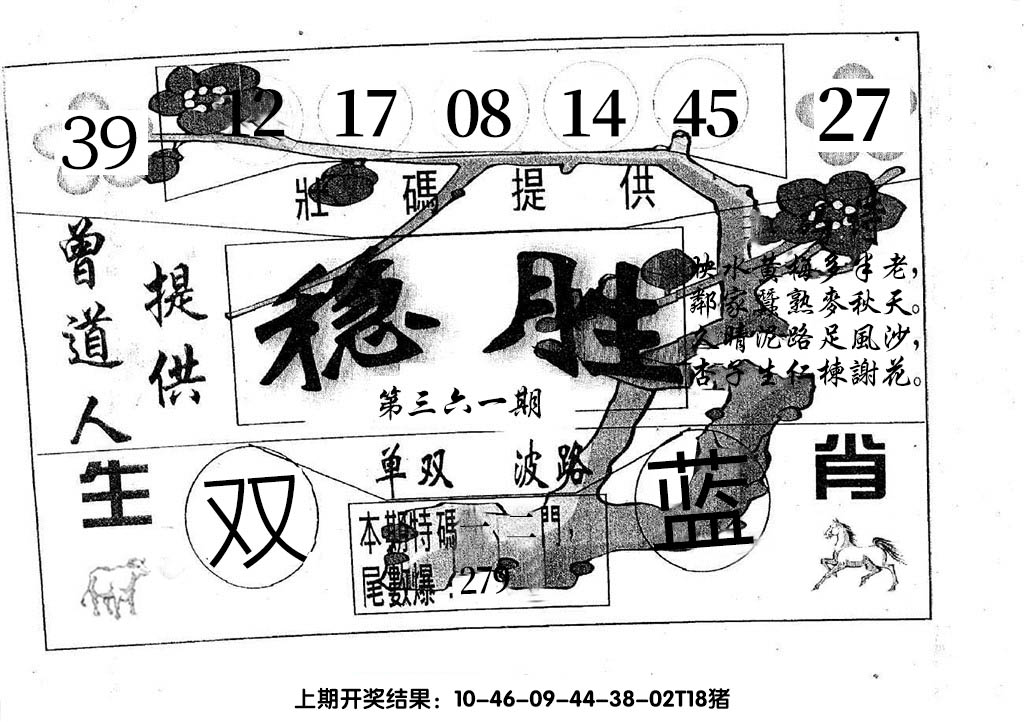 39 12 17 08 14 45 27
壯碼提供
特
曾道人
提供
稳胜
第三六一期
映水黄梅多半老，
鄰家蠶熟麥秋天。
久晴泥路足風沙，
杏子生仁楝謝花。
生肖
单双
波路
双
蓝
本期特碼一、二門，
尾數爆：279
上期开奖结果：10-46-09-44-38-02T18猪